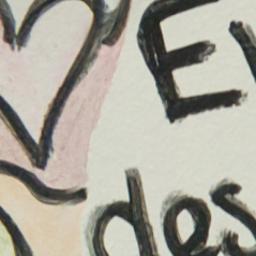 E
des